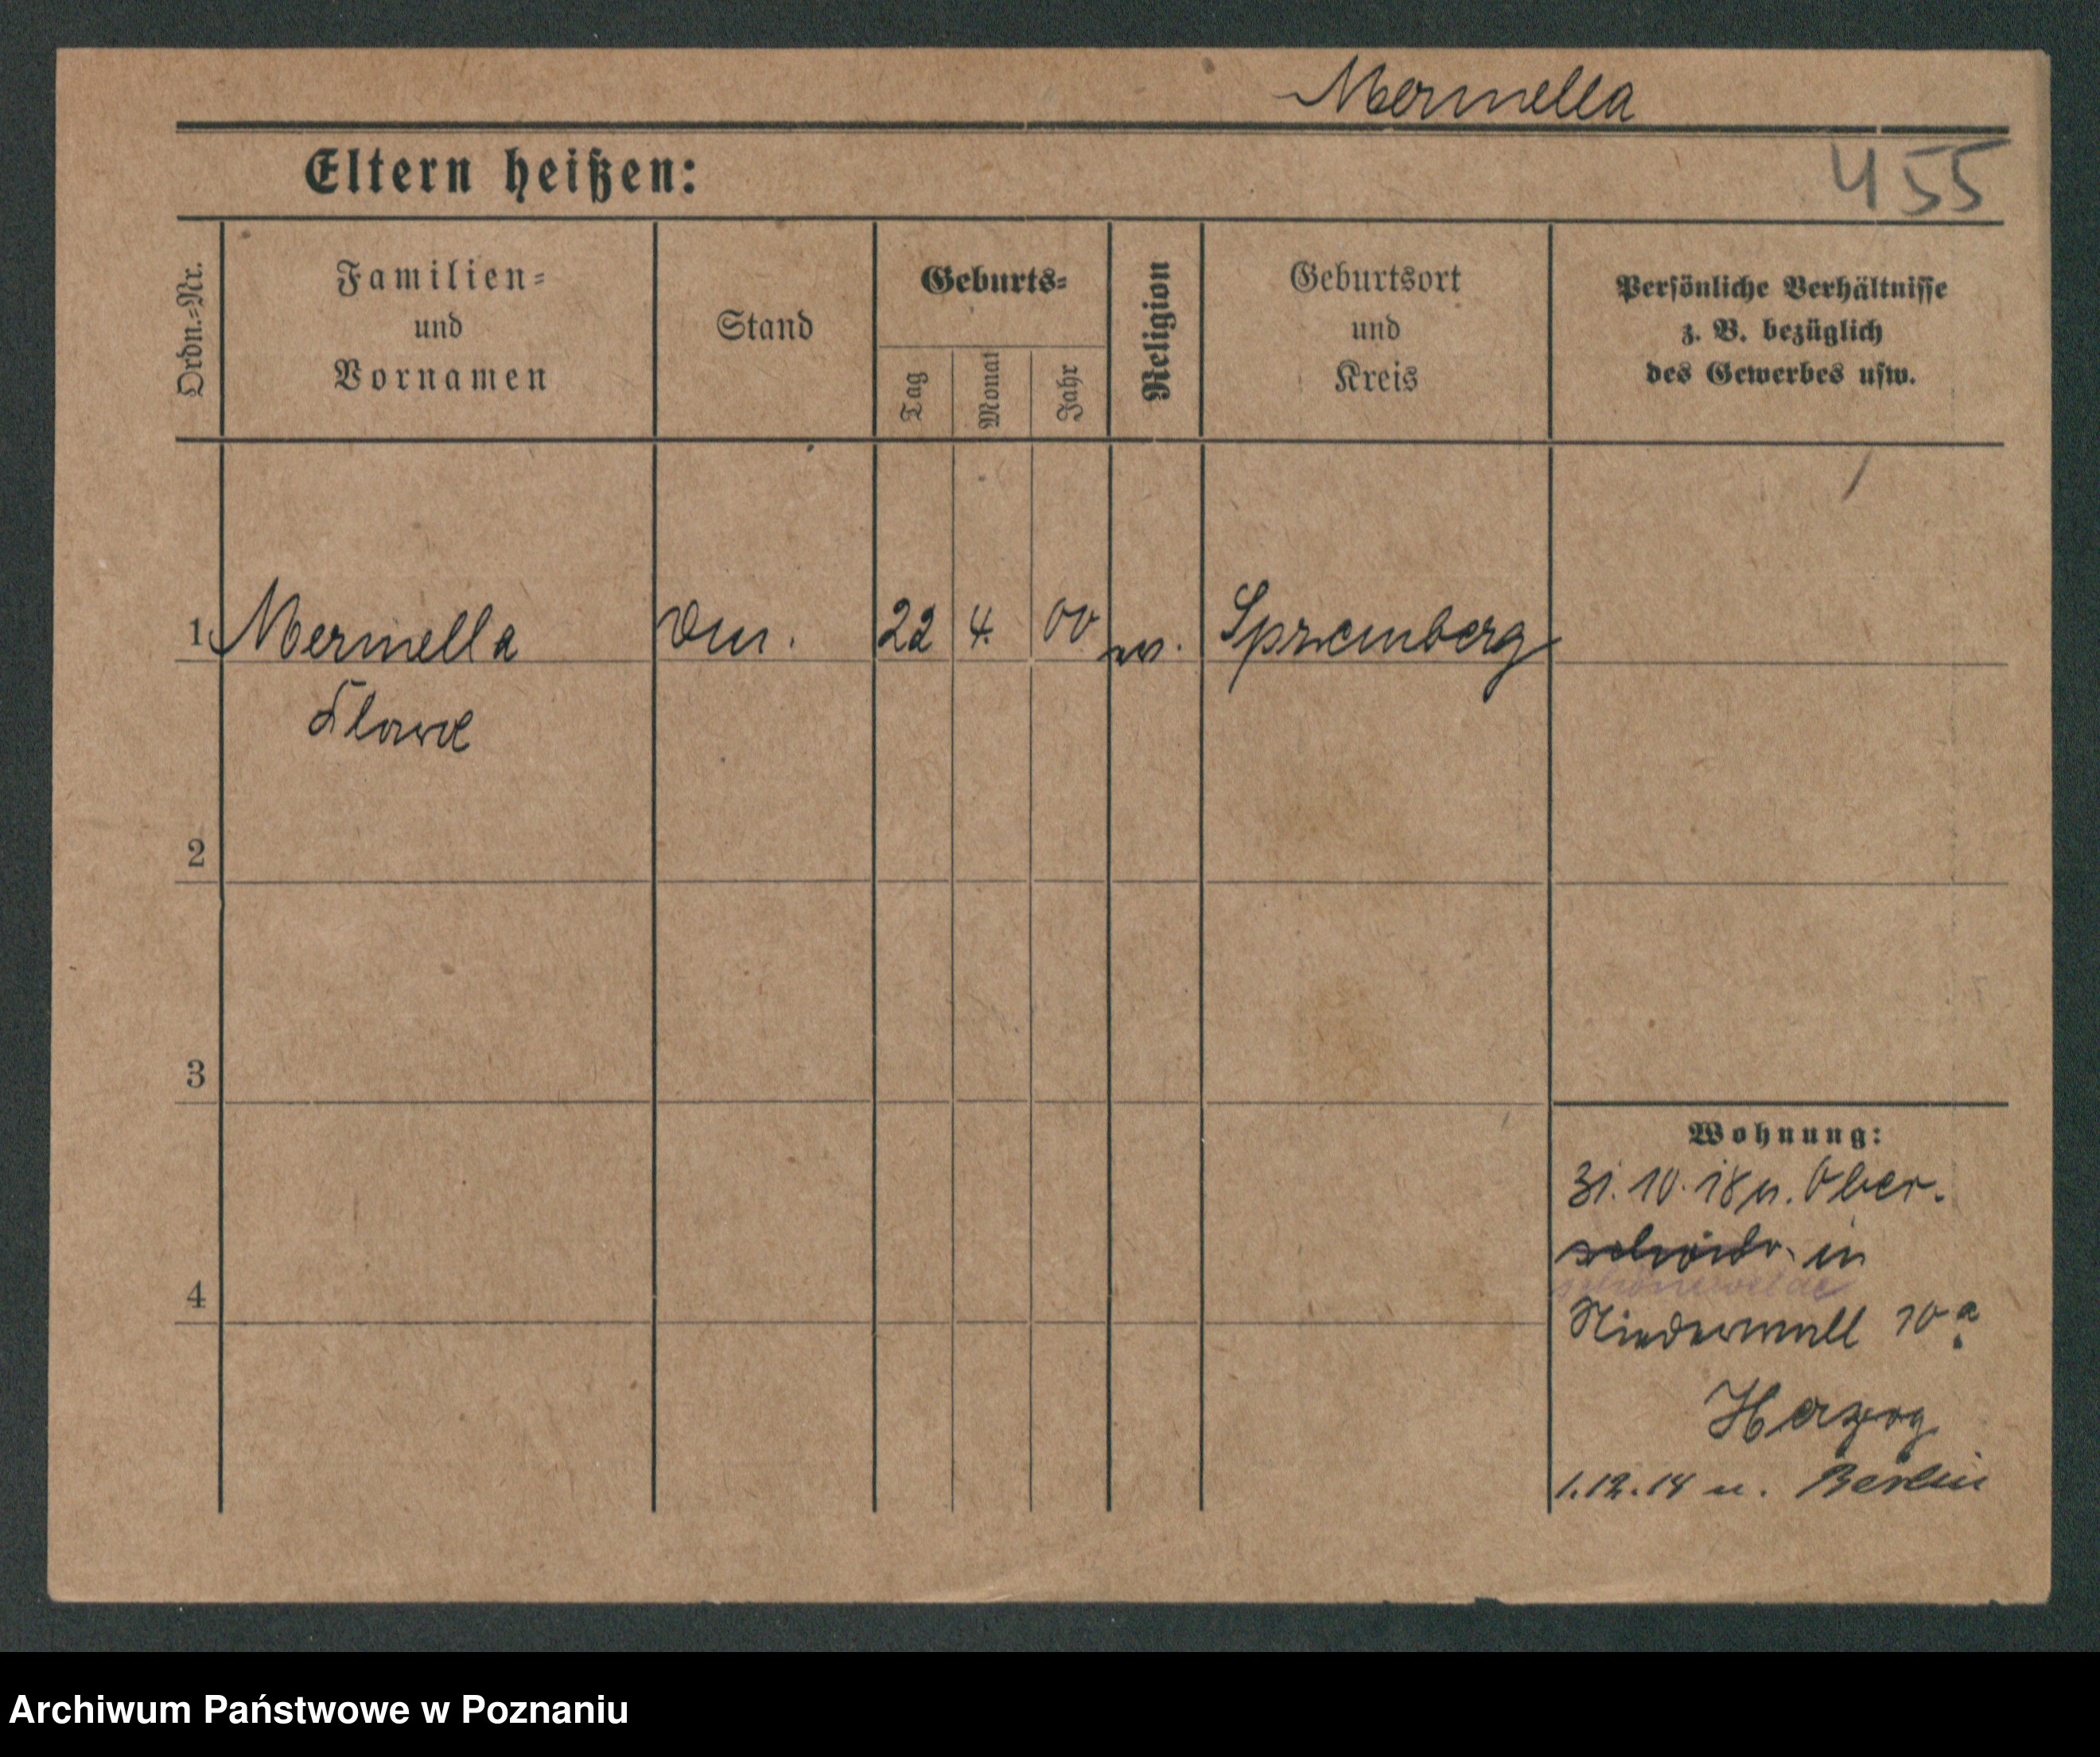 Mermella
Eltern heißen:
455
Ordn.-Nr.
Familien-
und
Vornamen
Stand
Geburts-
Tag
Monat
Jahr
Religion
Geburtsort
und
Kreis
Persönliche Verhältnisse
z. B. bezüglich
des Gewerbes usw.
1 Mermella 22 4. 00 ev. Spremberg
Klara
2
3
4
Wohnung:
31. 10. 18 n. Ober-
in
schöneweide
Niederwall 10a
Herzog
1.12.18 n. Berlin
Archiwum Państwowe w Poznaniu